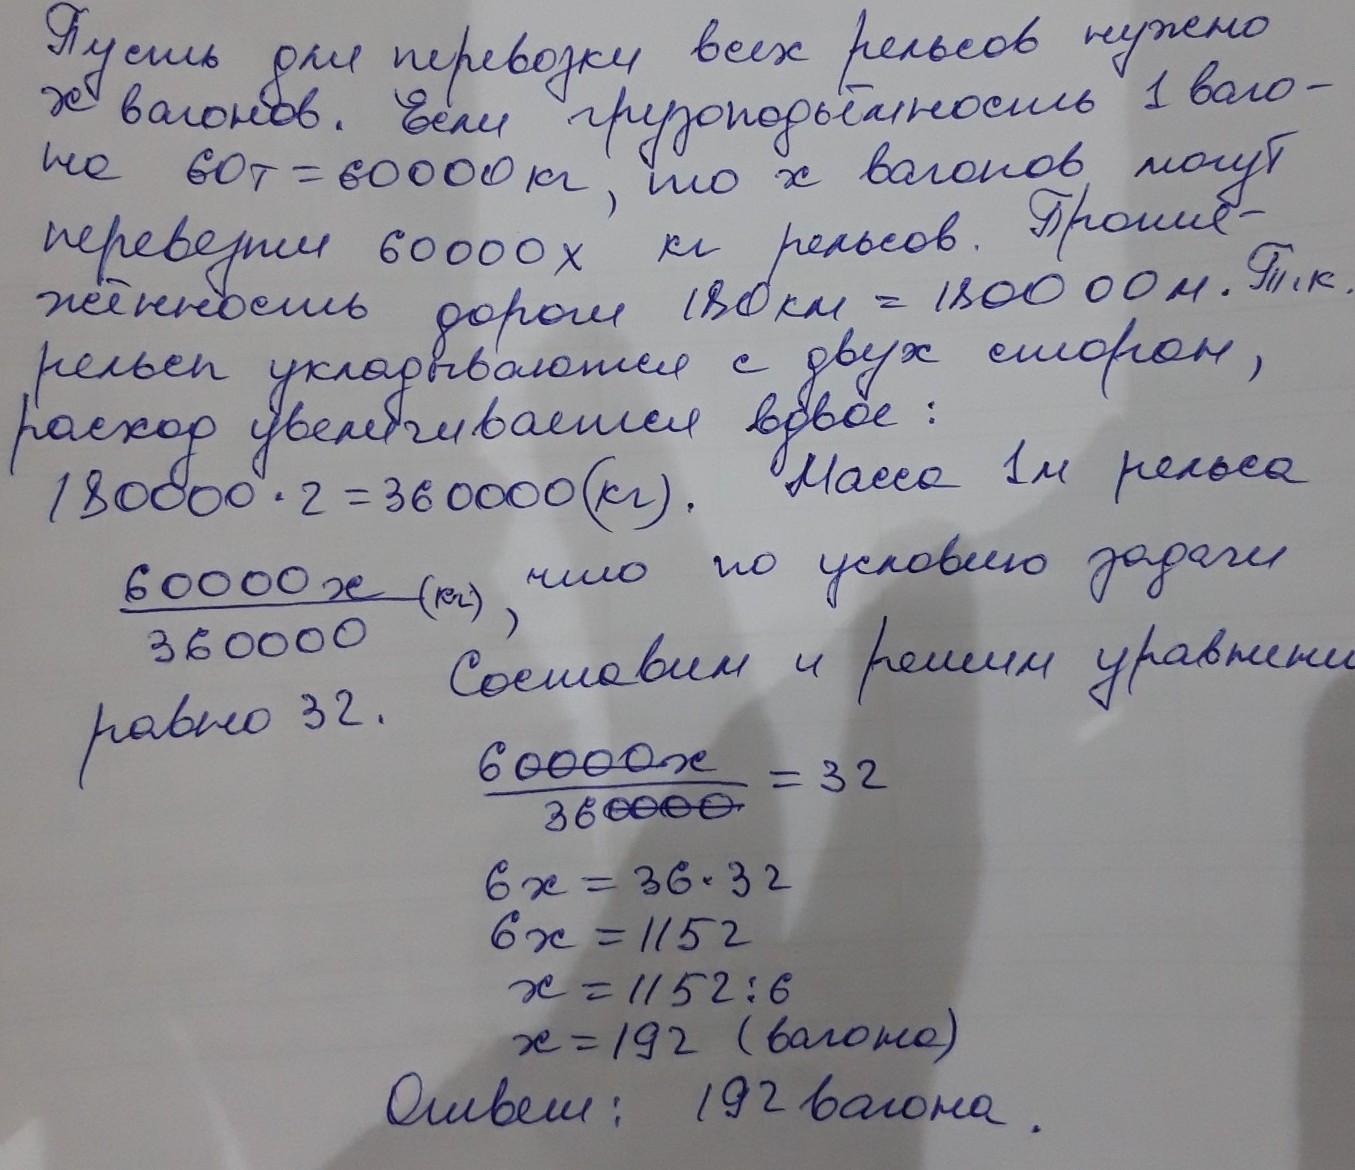 Пусть для перевозки всех рельсов нужно
x вагонов. Если грузоподъёмность 1 ваго-
на 60т = 60000 кг, то x вагонов могут
перевезти 60000x кг рельсов. Протя-
жённость дороги 180 км = 180000 м. Т.к.
рельсы укладываются с двух сторон,
расход увеличивается вдвое:
180000 · 2 = 360000 (кг). Масса 1м рельса
60000x / 360000 (кг), что по условию задачи
равно 32. Составим и решим уравнени
60000x / 360000 = 32
6x = 36 · 32
6x = 1152
x = 1152 : 6
x = 192 (вагона)
Ответ: 192 вагона.